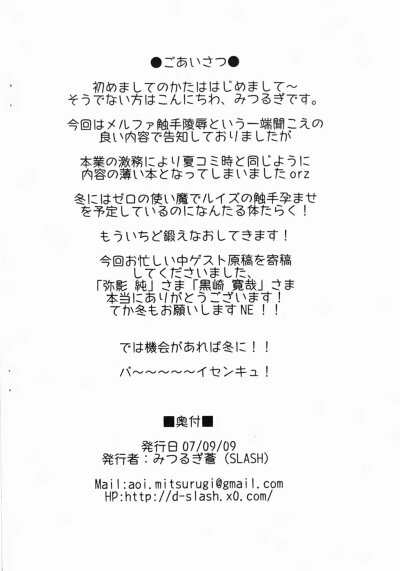 ●ごあいさつ●
初めましてのかたははじめまして～
そうでない方はこんにちわ、みつるぎです。
今回はメルファ触手陵辱という一端聞こえの
良い内容で告知しておりましたが
本業の激務により夏コミ時と同じように
内容の薄い本となってしまいましたorz
冬にはゼロの使い魔でルイズの触手孕ませ
を予定しているのになんたる体たらく！
もういちど鍛えなおしてきます！
今回お忙しい中ゲスト原稿を寄稿
してくださいました、
「弥影 純」さま「黒崎 寛哉」さま
本当にありがとうございます！
てか冬もお願いしますNE！！
では機会があれば冬に！！
バ～～～～～イセンキュ！
■奥付■
発行日07/09/09
発行者：みつるぎ蒼（SLASH）
Mail:aoi.mitsurugi@gmail.com
HP:http://d-slash.x0.com/